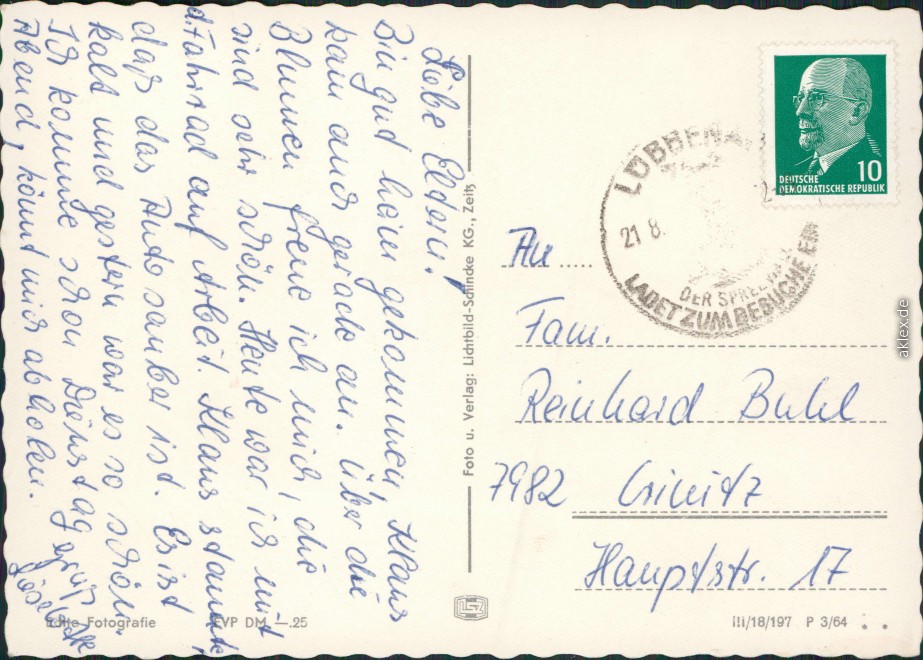 Liebe Eltern!
Bin gut heim gekommen. Klaus
kam auch gerade an. Über die
Blumen freue ich mich, die
sind sehr schön. Heute war ich mit
d. Fahrrad auf Arbeit. Klaus staunte,
daß das Auto sauber ist. Es ist
kalt und gestern war es so schön.
Ich komme schon Dienstag
Abend, könnt mich abholen.
Foto u. Verlag: Lichtbild-Schincke KG., Zeitz
LÜBBENA
21 8.
DER SPREE
LADET ZUM BESUCHE EIN
10
DEUTSCHE
DEMOKRATISCHE REPUBLIK
An
Fam.
Reinhard Buhl
7982 Crinitz
Hauptstr. 17
Echte Fotografie
EVP DM —.25
III/18/197 P 3/64
aklex.de